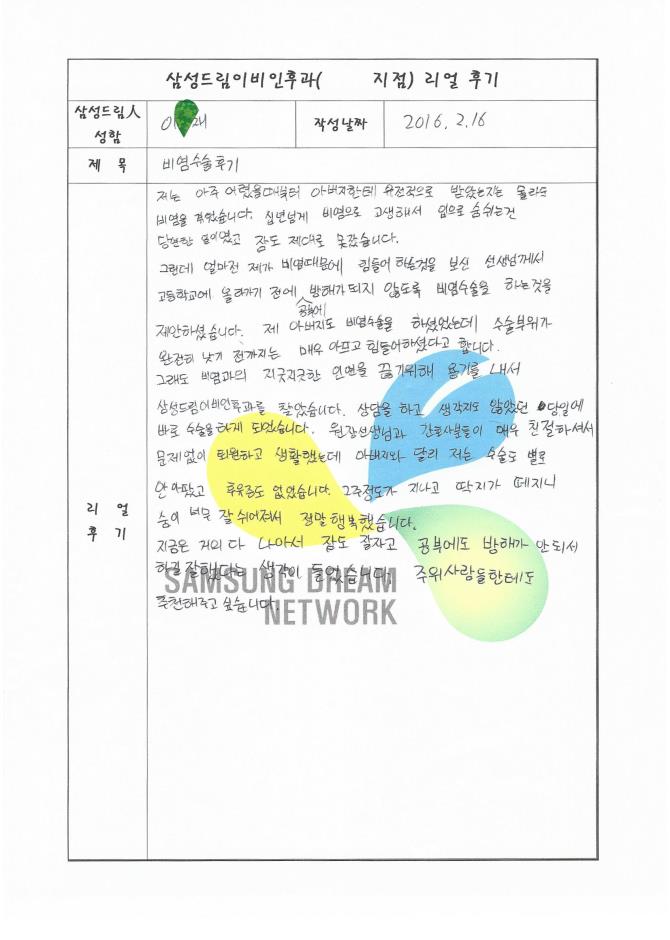 삼성드림이비인후과( 지점) 리얼 후기
삼성드림人 성함
작성날짜
2016. 2. 16
제 목
비염수술후기
저는 아주 어렸을때부터 아버지한테 유전적으로 받았는지는 몰라도
비염을 겪었습니다. 십년넘게 비염으로 고생해서 입으로 숨쉬는건
당연한 일이였고 잠도 제대로 못잤습니다.
그런데 얼마전 제가 비염때문에 힘들어 하는것을 보신 선생님께서
고등학교에 올라가기 전에 공부에 방해가 되지 않도록 비염수술을 하는것을
제안하셨습니다. 제 아버지도 비염수술을 하셨었는데 수술부위가
완전히 낫기 전까지는 매우 아프고 힘들어하셨다고 합니다.
그래도 비염과의 지긋지긋한 인연을 끊기위해 용기를 내서
삼성드림이비인후과를 찾았습니다. 상담을 하고 생각지도 않았던 당일에
바로 수술을 하게 되었습니다. 원장선생님과 간호사분들이 매우 친절하셔서
문제없이 퇴원하고 생활했는데 아버지와 달리 저는 수술도 별로
안아팠고 후유증도 없었습니다. 2주정도가 지나고 딱지가 떼지니
숨이 너무 잘 쉬어져서 정말 행복했습니다.
지금은 거의 다 나아서 잠도 잘자고 공부에도 방해가 안되서
하길 잘했다는 생각이 들었습니다. 주위사람들한테도
추천해주고 싶습니다.
리 얼
후 기
SAMSUNG DREAM
NETWORK